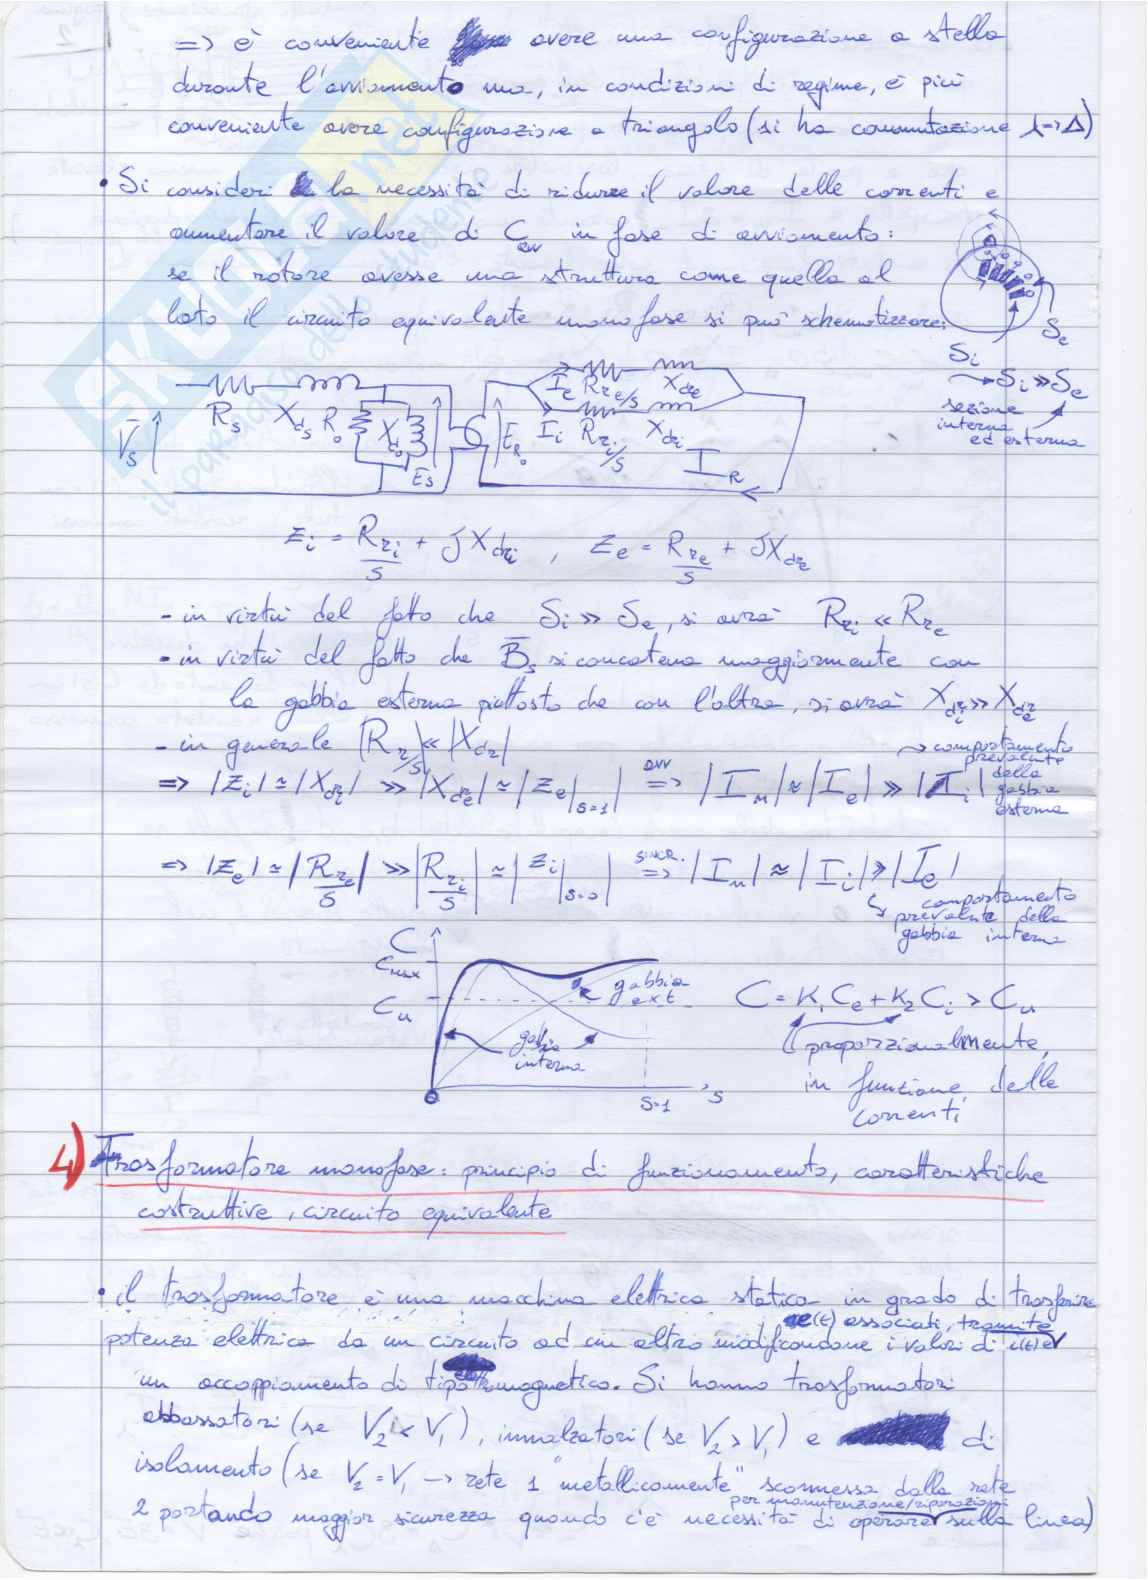 => è conveniente avere una configurazione a stella
durante l'avviamento ma, in condizioni di regime, è più
conveniente avere configurazione a triangolo (si ha commutazione λ=>Δ)
• Si consideri la necessità di ridurre il valore delle correnti e
aumentare il valore di C_avv in fase di avviamento:
se il rotore avesse una struttura come quella al
lato il circuito equivalente monofase si può schematizzare:
S_e
S_i
→ S_i >> S_e
sezione
interna
ed esterna
I_e R_re/s X_dre
V̄_s R_s X_ds R_0 X_d0 Ē_s Ē_R0 I_i R_ri/s X_dri I_R
Z_i = R_ri/s + jX_dri , Z_e = R_re/s + jX_dre
- in virtù del fatto che S_i >> S_e, si avrà R_ri << R_re
- in virtù del fatto che B̄_s si concatena maggiormente con
la gabbia esterna piuttosto che con l'altra, si avrà X_dri >> X_dre
- in generale |R_r/s| << |X_dr|
=> |Z_i| ≃ |X_dri| >> |X_dre| ≃ |Z_e|_s=1| avv => |I_n| ≈ |I_e| >> |I_i|
→ comportamento
prevalente
della
gabbia
esterna
=> |Z_e| ≃ |R_re/s| >> |R_ri/s| ≃ |Z_i|_s=0| SINCR. => |I_n| ≈ |I_i| >> |I_e|
↳ comportamento
prevalente della
gabbia interna
C
C_max
C_u
gabbia
ext
gabbia
interna
s=1
s
C = K_1 C_e + K_2 C_i > C_u
proporzionalmente,
in funzione delle
correnti
4) Trasformatore monofase: principio di funzionamento, caratteristiche
costruttive, circuito equivalente
• il trasformatore è una macchina elettrica statica in grado di trasferire
potenza elettrica da un circuito ad un altro modificandone i valori di i(t) e
e(t) associati, tramite
un accoppiamento di tipo magnetico. Si hanno trasformatori
abbassatori (se V_2 < V_1), innalzatori (se V_2 > V_1) e di
isolamento (se V_2 = V_1 → rete 1 "metallicamente" sconnessa dalla rete
2 portando maggior sicurezza quando c'è necessità di operare sulla linea)
per manutenzione/riparazioni
SKUOLA.net
il paradiso dello studente